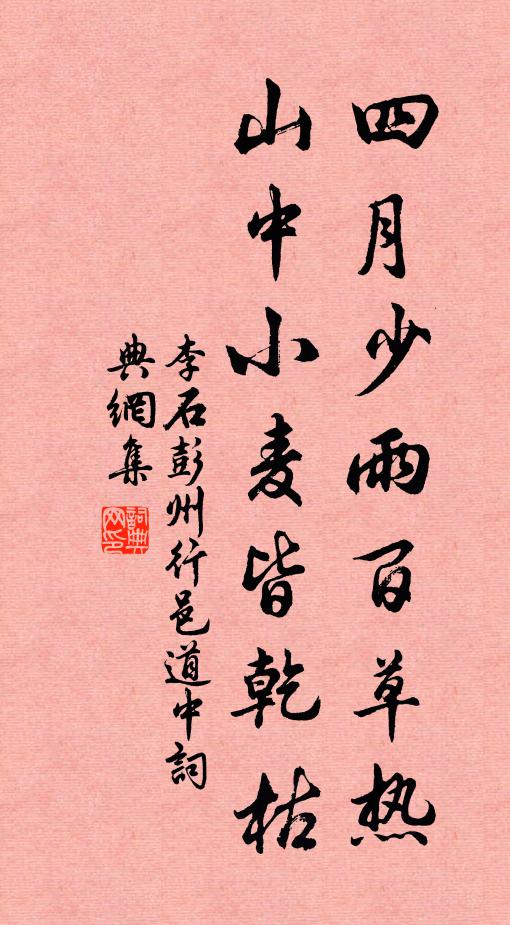 四月少雨百草热
山中小麦皆乾枯
李石彭州行邑道中詞
典網集
詞典
网印